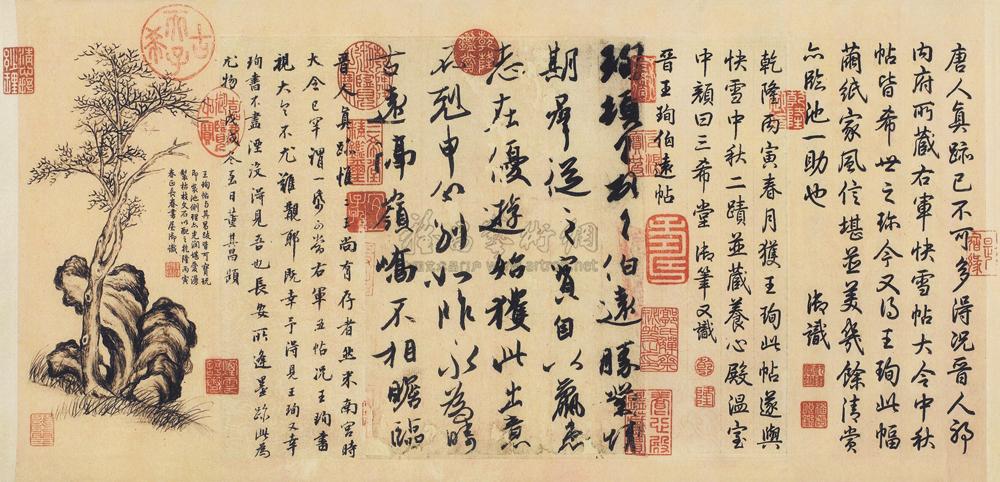 唐人真跡已不可多得況晉人耶
內府所藏右軍快雪帖大令中秋
帖皆希世之珍今又得王珣此幅
繭紙家風信堪並美幾餘清賞
亦臨池一助也 御識
乾隆丙寅春月獲王珣此帖遂與
快雪中秋二蹟並藏養心殿溫室
中顏曰三希堂 御筆又識
晉王珣伯遠帖
珣頓首頓首伯遠勝業情
期群從之寶自以羸患
志在優遊始獲此出意
不剋申分別如昨永為疇
古遠隔嶺嶠不相瞻臨
晉人真跡惟二王尚有存者然米南宮時
大令已罕謂一紙可當右軍五帖況王珣書
視大令不尤難覯耶既幸予得見王珣又幸
珣書不盡湮沒得見吾也長安所逢墨跡此為
尤物戊戌冬至日董其昌題
王珣帖与其昌跋皆可寶玩
即裝池側理亦光潤堪愛漫
製枯枝文石以配之乾隆丙寅
春正長春書屋御識
古希天子